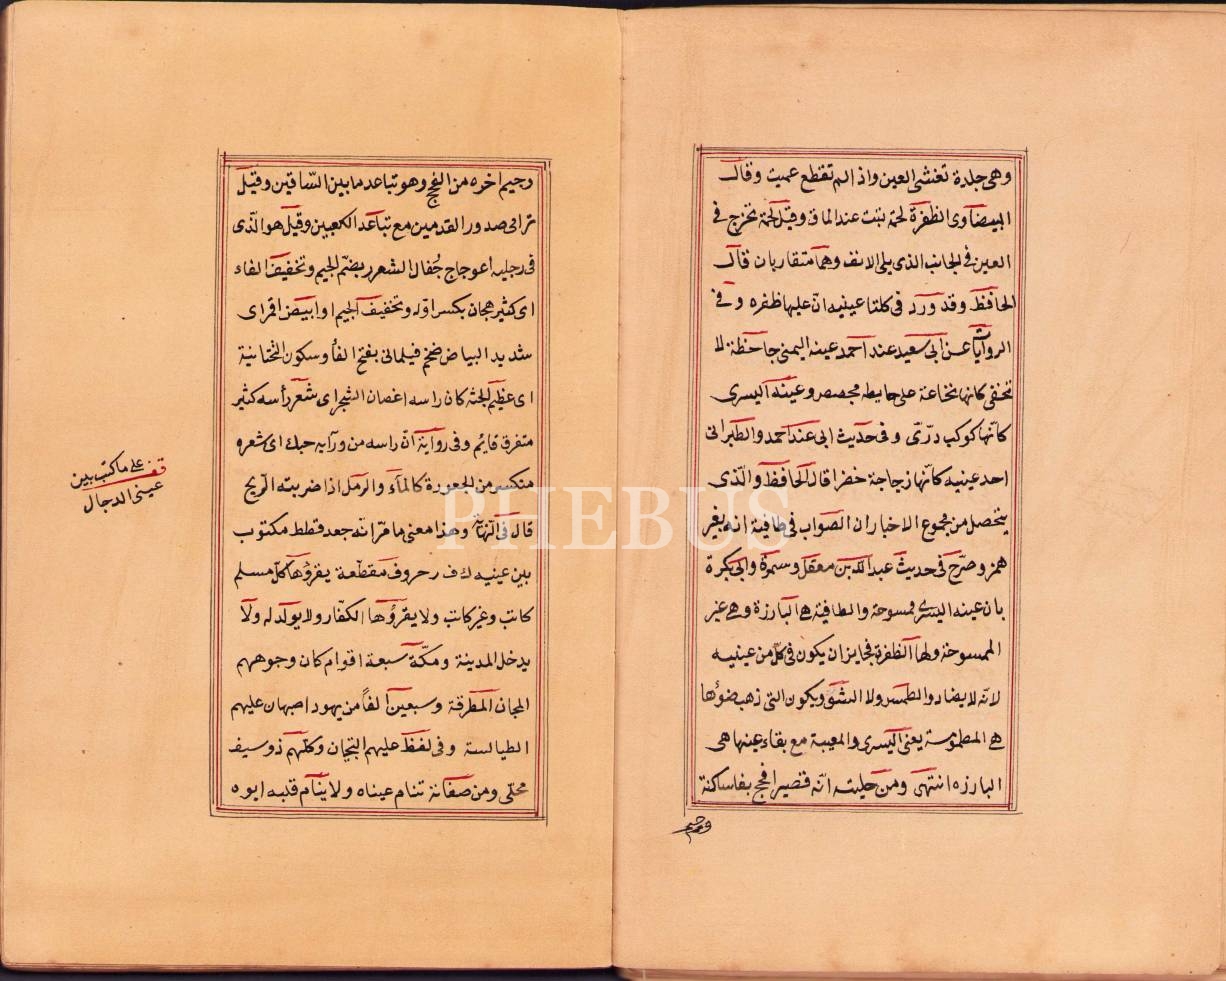 وهى جلدة تغشى العين واذا لم تقطع عميت وقال
البيضاوى الظفرة لحمة تنبت عند الماق وقيل لحمة تخرج في
العين فى الجانب الذى يلى الانف وهما متقاربان قال
الحافظ وقد ورد فى كلتا عينيه ان عليها ظفره وفى
الروايات عن ابى سعيد عند احمد عينه اليمنى جاحظة لا
تخفى كانها نخاعة على حايط مجصص وعينه اليسرى
كأنها كوكب درّى وفى حديث ابى عند احمد والطبرانى
احد عينيه كأنها زجاجة خضرا قال الحافظ والّذى
يتحصل من مجموع الاخبار ان الصواب فى طافية انه بغير
همز وصرّح فى حديث عبد الله بن مغفل وسمرة وابى بكرة
بان عينه اليسرى ممسوحة والطافية هى البارزة وهى غير
الممسوحة ولها الظفرة فجايز ان يكون فى كلّ من عينيه
لانّه لا يضاد والطمس ولا النتو ويكون التى ذهب ضوئها
هى المطموسة يعنى اليسرى والمعيبة مع بقاء عينها هى
البارزه انتهى ومن حليته انّه قصير افحج بفا ساكنة
وجيم
وجيم اخره من الفحج وهو تباعد ما بين السّاقين وقيل
تدانى صدور القدمين مع تباعد الكعبين وقيل هو الّذى
فى رجليه اعوجاج جُفال الشعر بضمّ الجيم وتخفيف الفاء
اى كثير هجان بكسر اوّله وتخفيف الجيم او ابيض اقمر اى
شديد البياض ضخم فيلمانى بفتح الفا وسكون التحتانية
اى عظيم الجثه كان راسه اغصان الشجر اى شعر رأسه كثير
متفرق قايم وفى رواية انّ راسه من ورآيه حبك اى شعره
متكسر من الجعورة كالمآء والرمل اذا ضربته الرّيح
قال فى النّهاية وهذا معنى ما مرّ انّه جعد قطط مكتوب
بين عينيه ك ف ر حروف مقطعة يقرؤها كلّ مسلم
كاتب وغير كاتب ولا يقرؤها الكفار ولا يولد له ولا
يدخل المدينة ومكّة سبعة اقوام كان وجوههم
المجان المطرقة وسبعين الفاً من يهود اصبهان عليهم
الطيالسة وفى لفظ عليهم التيجان وكلّهم ذو سيف
محلّى ومن صفاته تنام عيناه ولا ينام قلبه ابوه
قف على ما كتب بين
عينى الدجال
PHEBUS